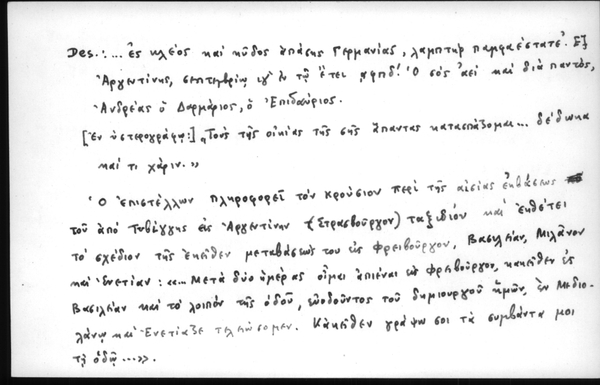 Des.: ... ἐς κλέος καὶ κῦδος ἁπάσης Γερμανίας, λαμπτὴρ παμφαέστατε. Ἐξ
Ἀργεντίνης, σεπτεμβρίῳ ιγʹ ἐν τῷ ἔτει ͵αφπδ! Ὁ σὸς ἀεὶ καὶ διὰ παντὸς,
Ἀνδρέας ὁ Δαρμάριος, ὁ Ἐπιδαύριος.
[Ἐν ὑστερογράφῳ:] „Τοὺς τῆς οἰκίας τῆς σῆς ἅπαντας κατασπάζομαι... δέδωκα
καί τι χάριν.»
Ὁ ἐπιστέλλων πληροφορεῖ τὸν Κρούσιον περὶ τῆς αἰσίας ἐκβάσεως
τοῦ ἀπὸ Τυβίγγης εἰς Ἀργεντίνην (Στρασβοῦργον) ταξιδίου καὶ ἐκθέτει
τὸ σχέδιον τῆς ἐκεῖθεν μεταβάσεώς του εἰς Φρειβοῦργον, Βασιλείαν, Μιλᾶνον
καὶ Ἐνετίαν: «... Μετὰ δύο ἡμέρας οἶμαι ἀπιέναι ὡς Φρειβοῦργον, κἀκεῖθεν ἐς
Βασιλείαν καὶ τὸ λοιπὸν τῆς ὁδοῦ, εὐοδοῦντος τοῦ δημιουργοῦ ἡμῶν, ἐν Μεδιο-
λάνῳ καὶ Ἐνετίαζε τελέσομεν. Κἀκεῖθεν γράψω σοι τὰ συμβάντα μοι
τῇ ὁδῷ...».